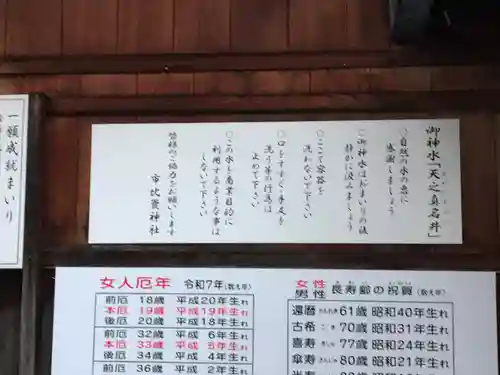 御神水「天之真名井」
○自然の水の恵に
感謝しましょう
○御神水はおまいりの後
静かに汲みましょう
○ここで容器を
洗わないで下さい
○口をすすぐ、手足を
洗う等の行為は
止めて下さい
○この水を商業目的に
利用するような事は
しないで下さい
皆様のご協力をお願いします
市比賣神社
一願成就まいり
女人厄年 令和7年(数え年)
前厄 18歳 平成20年生れ
本厄 19歳 平成19年生れ
後厄 20歳 平成18年生れ
前厄 32歳 平成6年生れ
本厄 33歳 平成5年生れ
後厄 34歳 平成4年生れ
前厄 36歳 平成2年生れ
女性 男性 長寿齢の祝賀(数え年)
還暦 かんれき 61歳 昭和40年生れ
古希 こき 70歳 昭和31年生れ
喜寿 きじゅ 77歳 昭和24年生れ
傘寿 さんじゅ 80歳 昭和21年生れ